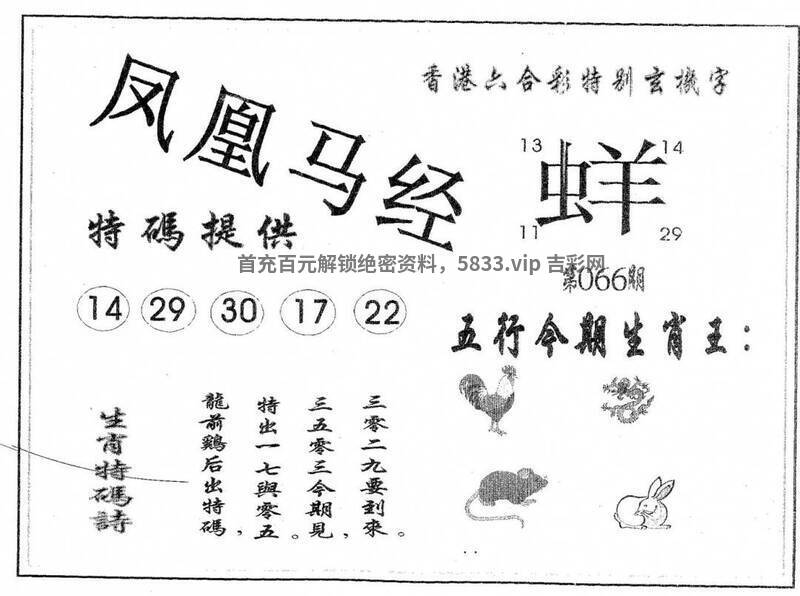 凤凰马经
香港六合彩特别玄機字
13
14
蛘
11
29
特碼提供
首充百元解锁绝密资料，5833.vip 吉彩网
第066期
14 29 30 17 22
五行今期生肖王：
生肖特碼詩
三零二九要到來。
三五零三今期見，
特出一七與零五。
龍前鷄后出特碼，